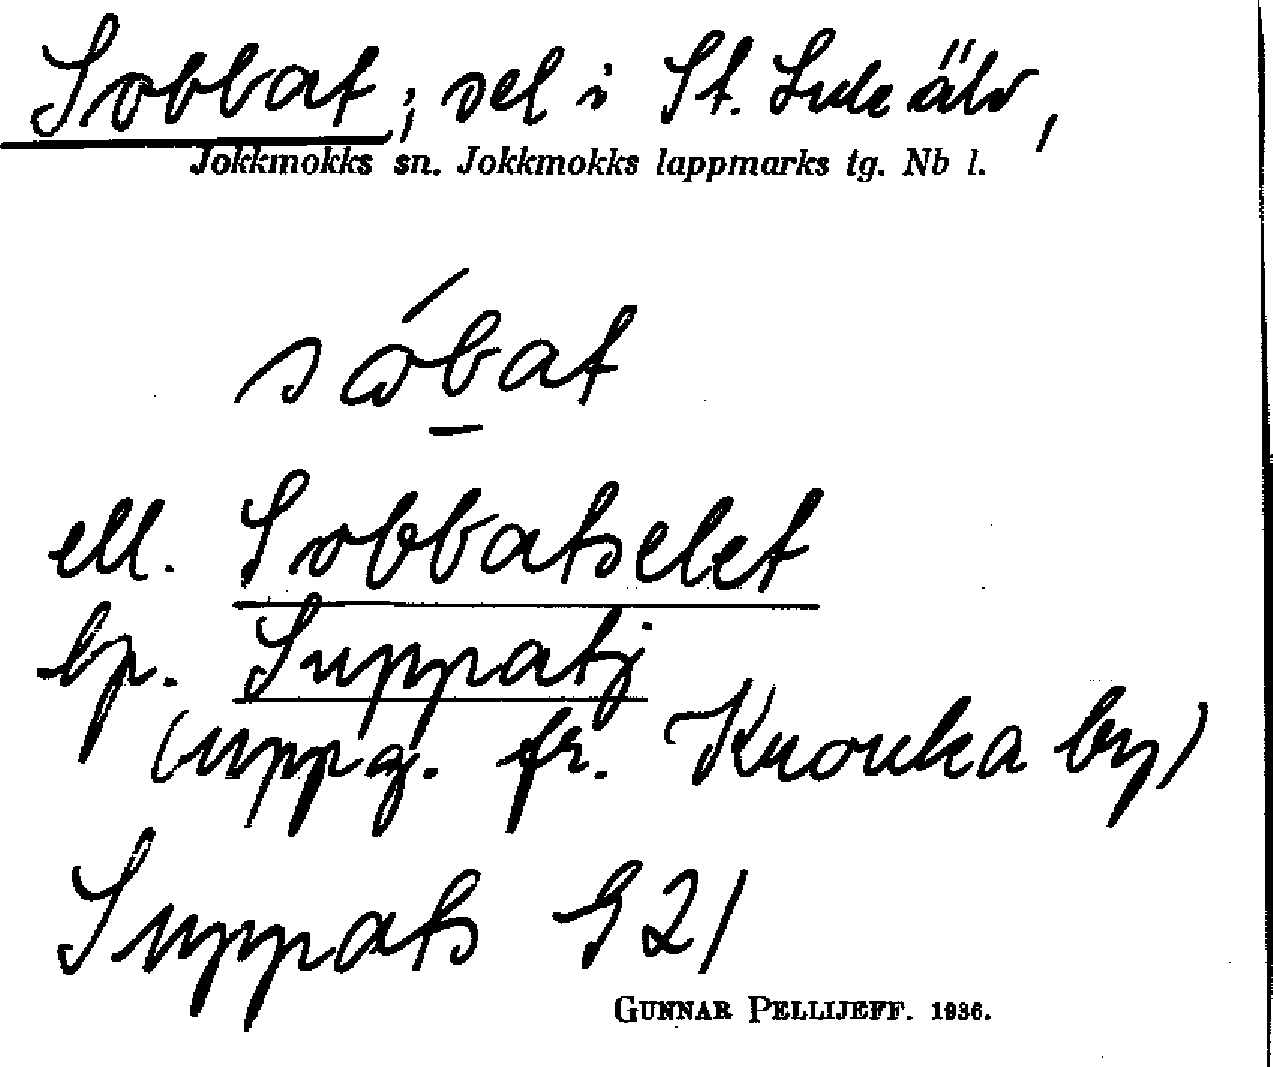 Sobbat; sel i St. Lule älv,
Jokkmokks sn. Jokkmokks lappmarks tg. Nb l.
sóbat
ell. Sobbatselet
bp. Suppatj
(uppg. fr. Knouka by)
Suppats 921
GUNNAR PELLIJEFF. 1936.